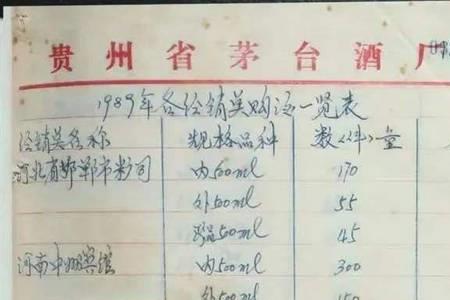 贵州省茅台酒厂
1989年各经销美购酒一览表
经销美名称 规格品种 数(件)量
河北省邯郸市糖司 内500ml 170
外500ml 55
500ml 45
河南中州宾馆 内500ml 300
外500ml 150